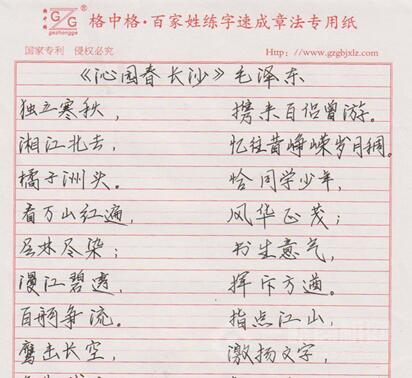 格中格·百家姓练字速成章法专用纸
GG
gezhongge
国家专利 侵权必究
Http：//www.gzgbjxlz.com
《沁园春 长沙》毛泽东
独立寒秋，
湘江北去，
橘子洲头。
看万山红遍，
层林尽染；
漫江碧透，
百舸争流。
鹰击长空，
携来百侣曾游。
忆往昔峥嵘岁月稠。
恰同学少年，
风华正茂；
书生意气，
挥斥方遒。
指点江山，
激扬文字，